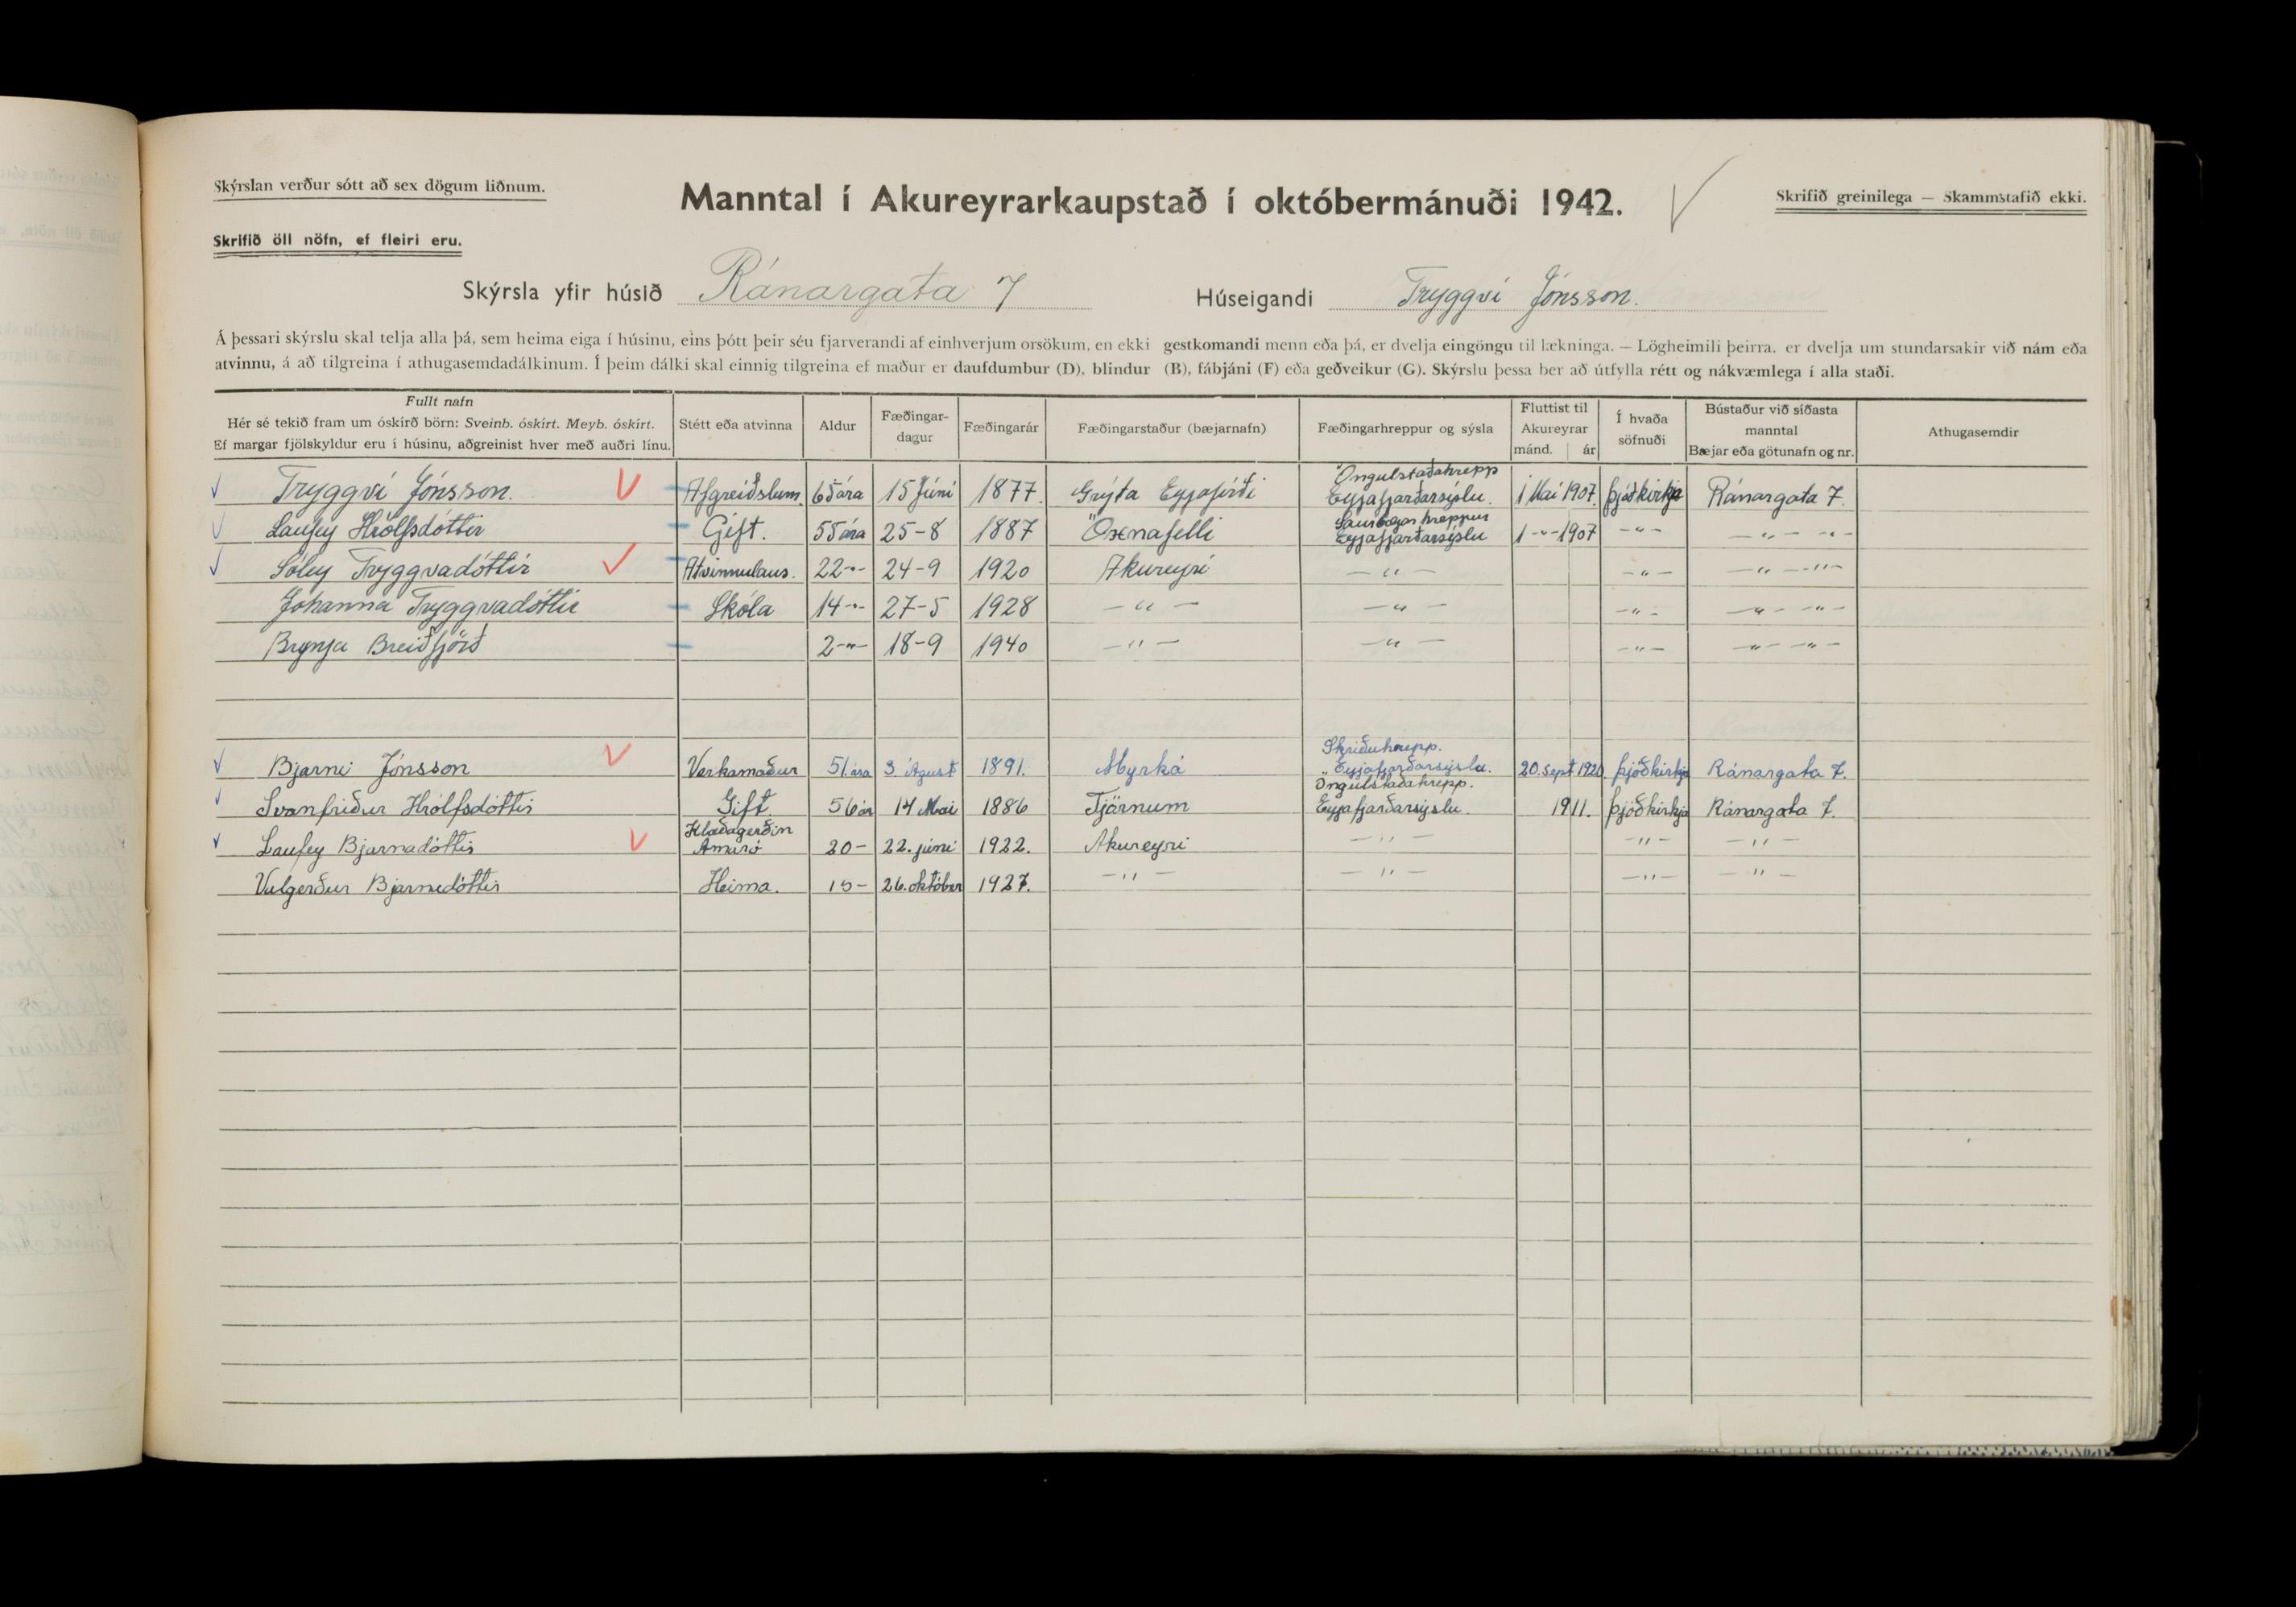 Skýrslan verður sótt að sex dögum liðnum.
Manntal í Akureyrarkaupstað í októbermánuði 1942.
Skrifið greinilega — Skammstafið ekki.
Skrifið öll nöfn, ef fleiri eru.
Skýrsla yfir húsið Ránargata 7 Húseigandi Tryggvi Jónsson.
Á þessari skýrslu skal telja alla þá, sem heima eiga í húsinu, eins þótt þeir séu fjarverandi af einhverjum orsökum, en ekki gestkomandi menn eða þá, er dvelja eingöngu til lækninga. — Lögheimili þeirra, er dvelja um stundarsakir við nám eða
atvinnu, á að tilgreina í athugasemdadálkinum. Í þeim dálki skal einnig tilgreina ef maður er daufdumbur (D), blindur (B), fábjáni (F) eða geðveikur (G). Skýrslu þessa ber að útfylla rétt og nákvæmlega í alla staði.
Fullt nafn
Hér sé tekið fram um óskírð börn: Sveinb. óskírt. Meyb. óskírt.
Ef margar fjölskyldur eru í húsinu, aðgreinist hver með auðri línu.
Stétt eða atvinna
Aldur
Fæðingar-
dagur
Fæðingarár
Fæðingarstaður (bæjarnafn)
Fæðingarhreppur og sýsla
Fluttist til
Akureyrar
mánd. ár
Í hvaða
söfnuði
Bústaður við síðasta
manntal
Bæjar eða götunafn og nr.
Athugasemdir
Öngulstaðahrepp
Tryggvi Jónsson. Afgreiðslum. 65 ára 15 Júní 1877. Grýta Eyjafirði Eyjafjarðarsýslu. 1 Maí 1907. þjóðkirkja Ránargata 7.
Saurbæjar hreppur
Laufey Hrólfsdóttir Gift. 55 ára 25-8 1887 Öxnafelli Eyjafjarðarsýslu 1 -"- 1907 -"- -"- -"-
Sóley Tryggvadóttir Atvinnulaus. 22 -"- 24-9 1920 Akureyri -"- -"- -"- -"-
Jóhanna Tryggvadóttir Skóla 14 -"- 27-5 1928 -"- -"- -"- -"- -"-
Brynja Breiðfjörð 2 -"- 18-9 1940 -"- -"- -"- -"- -"-
Skriðuhrepp.
Bjarni Jónsson Verkamaður 51 ára 3. Ágúst 1891. Myrká Eyjafjarðarsýslu. 20. Sept 1920. þjóðkirkja Ránargata 7.
Öngulstaðahrepp.
Svanfríður Hrólfsdóttir Gift 56 ár 14 Maí 1886 Tjörnum Eyjafjarðarsýslu. 1911. þjóðkirkja Ránargata 7.
Klæðagerðin
Laufey Bjarnadóttir Amaró 20 - 22. júní 1922. Akureyri -"- -"- -"-
Valgerður Bjarnadóttir Heima. 15 - 26. október 1927. -"- -"- -"- -"-